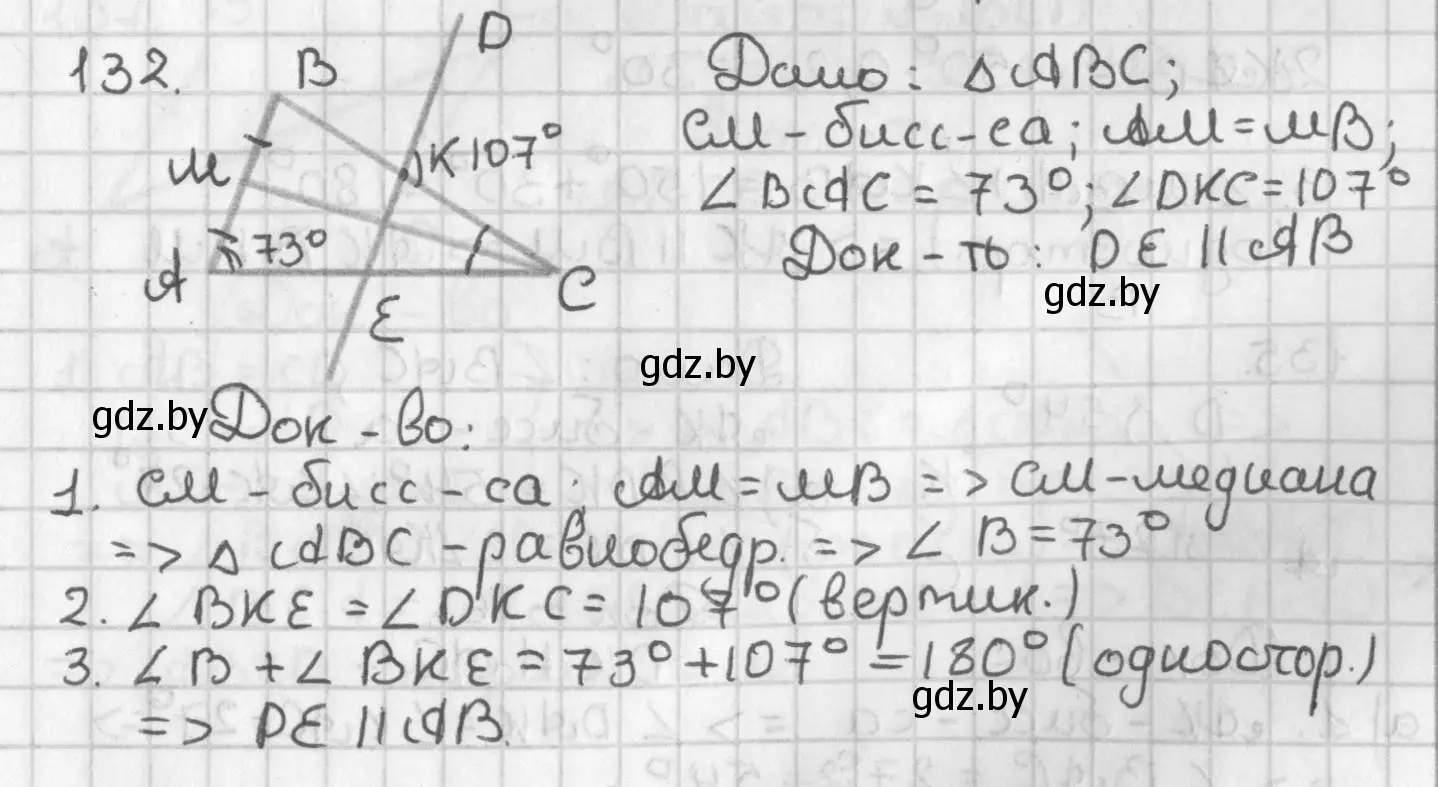 132.
B
D
M
K 107°
A
73°
E
C
Дано: △ABC;
CM - бисс-са; AM = MB;
∠BAC = 73°; ∠DKC = 107°
Док - ть: DE || AB
gdz.by
gdz.by
gdz.by
Док - во:
1. CM - бисс - са; AM = MB => CM - медиана
=> △ABC - равнобедр. => ∠B = 73°
2. ∠BKE = ∠DKC = 107° (вертик.)
3. ∠B + ∠BKE = 73° + 107° = 180° (одностор.)
gdz.by
=> DE || AB.